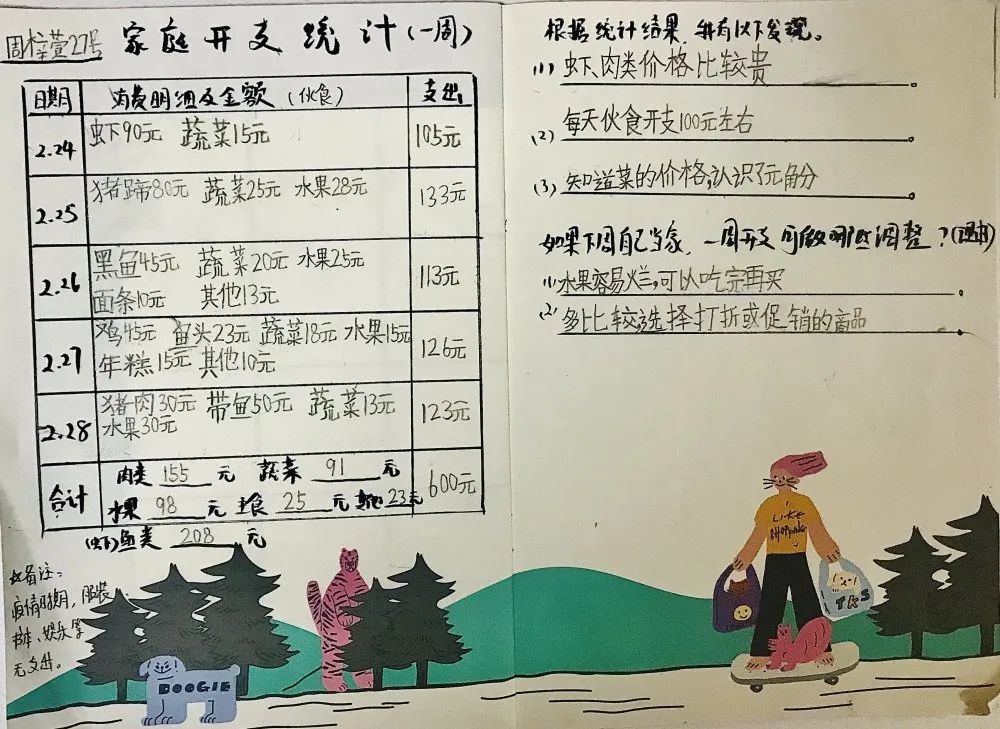 周梓萱27号 家庭开支统计(一周)
日期 消费明细及金额 (伙食) 支出
2.24 虾90元 蔬菜15元 105元
2.25 猪蹄80元 蔬菜25元 水果28元 133元
2.26 黑鱼45元 蔬菜20元 水果25元 113元
面条10元 其他13元
2.27 鸡45元 鱼头23元 蔬菜18元 水果15元 126元
年糕15元 其他10元
2.28 猪肉30元 带鱼50元 蔬菜13元 123元
水果30元
合计 肉类 155 元 蔬菜 91 元 600元
水果 98 元 主食 25 元 其他 23元
(虾)鱼类 208 元
备注:
疫情时期,服装
书本、娱乐等
无支出。
DOOGIE
根据统计结果,我有以下发现。
(1) 虾、肉类价格比较贵
(2) 每天伙食开支100元左右
(3) 知道菜的价格,认识了元角分
如果下周自己当家,一周开支可做哪些调整?
(1) 水果容易烂,可以吃完再买
(2) 多比较选择打折或促销的商品
I
LIKE
SHOPPING
TKS